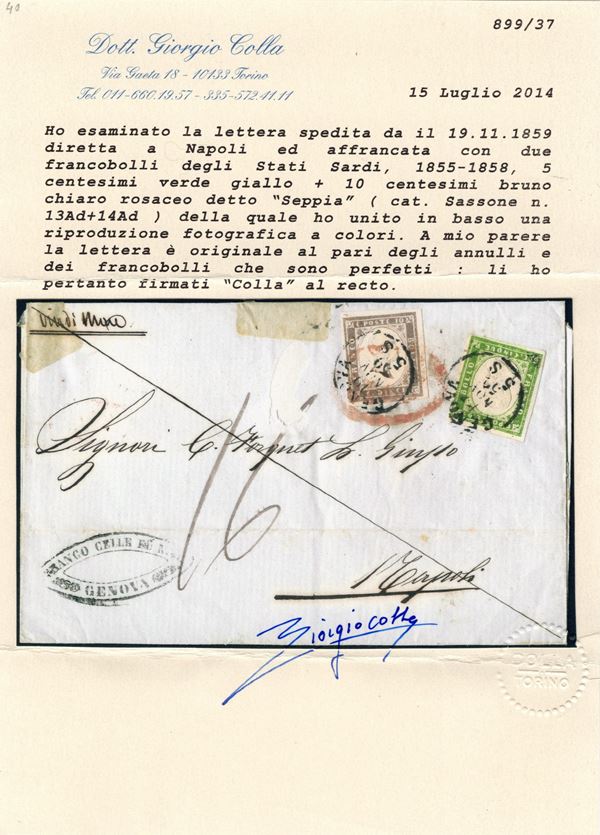 40
899/37
Dott. Giorgio Colla
Via Gaeta 18 - 10133 Torino
Tel. 011-660.19.57 - 335-572.41.11
15 Luglio 2014
Ho esaminato la lettera spedita da il 19.11.1859
diretta a Napoli ed affrancata con due
francobolli degli Stati Sardi, 1855-1858, 5
centesimi verde giallo + 10 centesimi bruno
chiaro rosaceo detto "Seppia" ( cat. Sassone n.
13Ad+14Ad ) della quale ho unito in basso una
riproduzione fotografica a colori. A mio parere
la lettera è originale al pari degli annulli e
dei francobolli che sono perfetti : li ho
pertanto firmati "Colla" al recto.
Via di Mare
C. POSTE 10
GENOVA
GENOVA
Signori C.
16
GENOVA
Napoli
Giorgio Colla
COLLA
TORINO